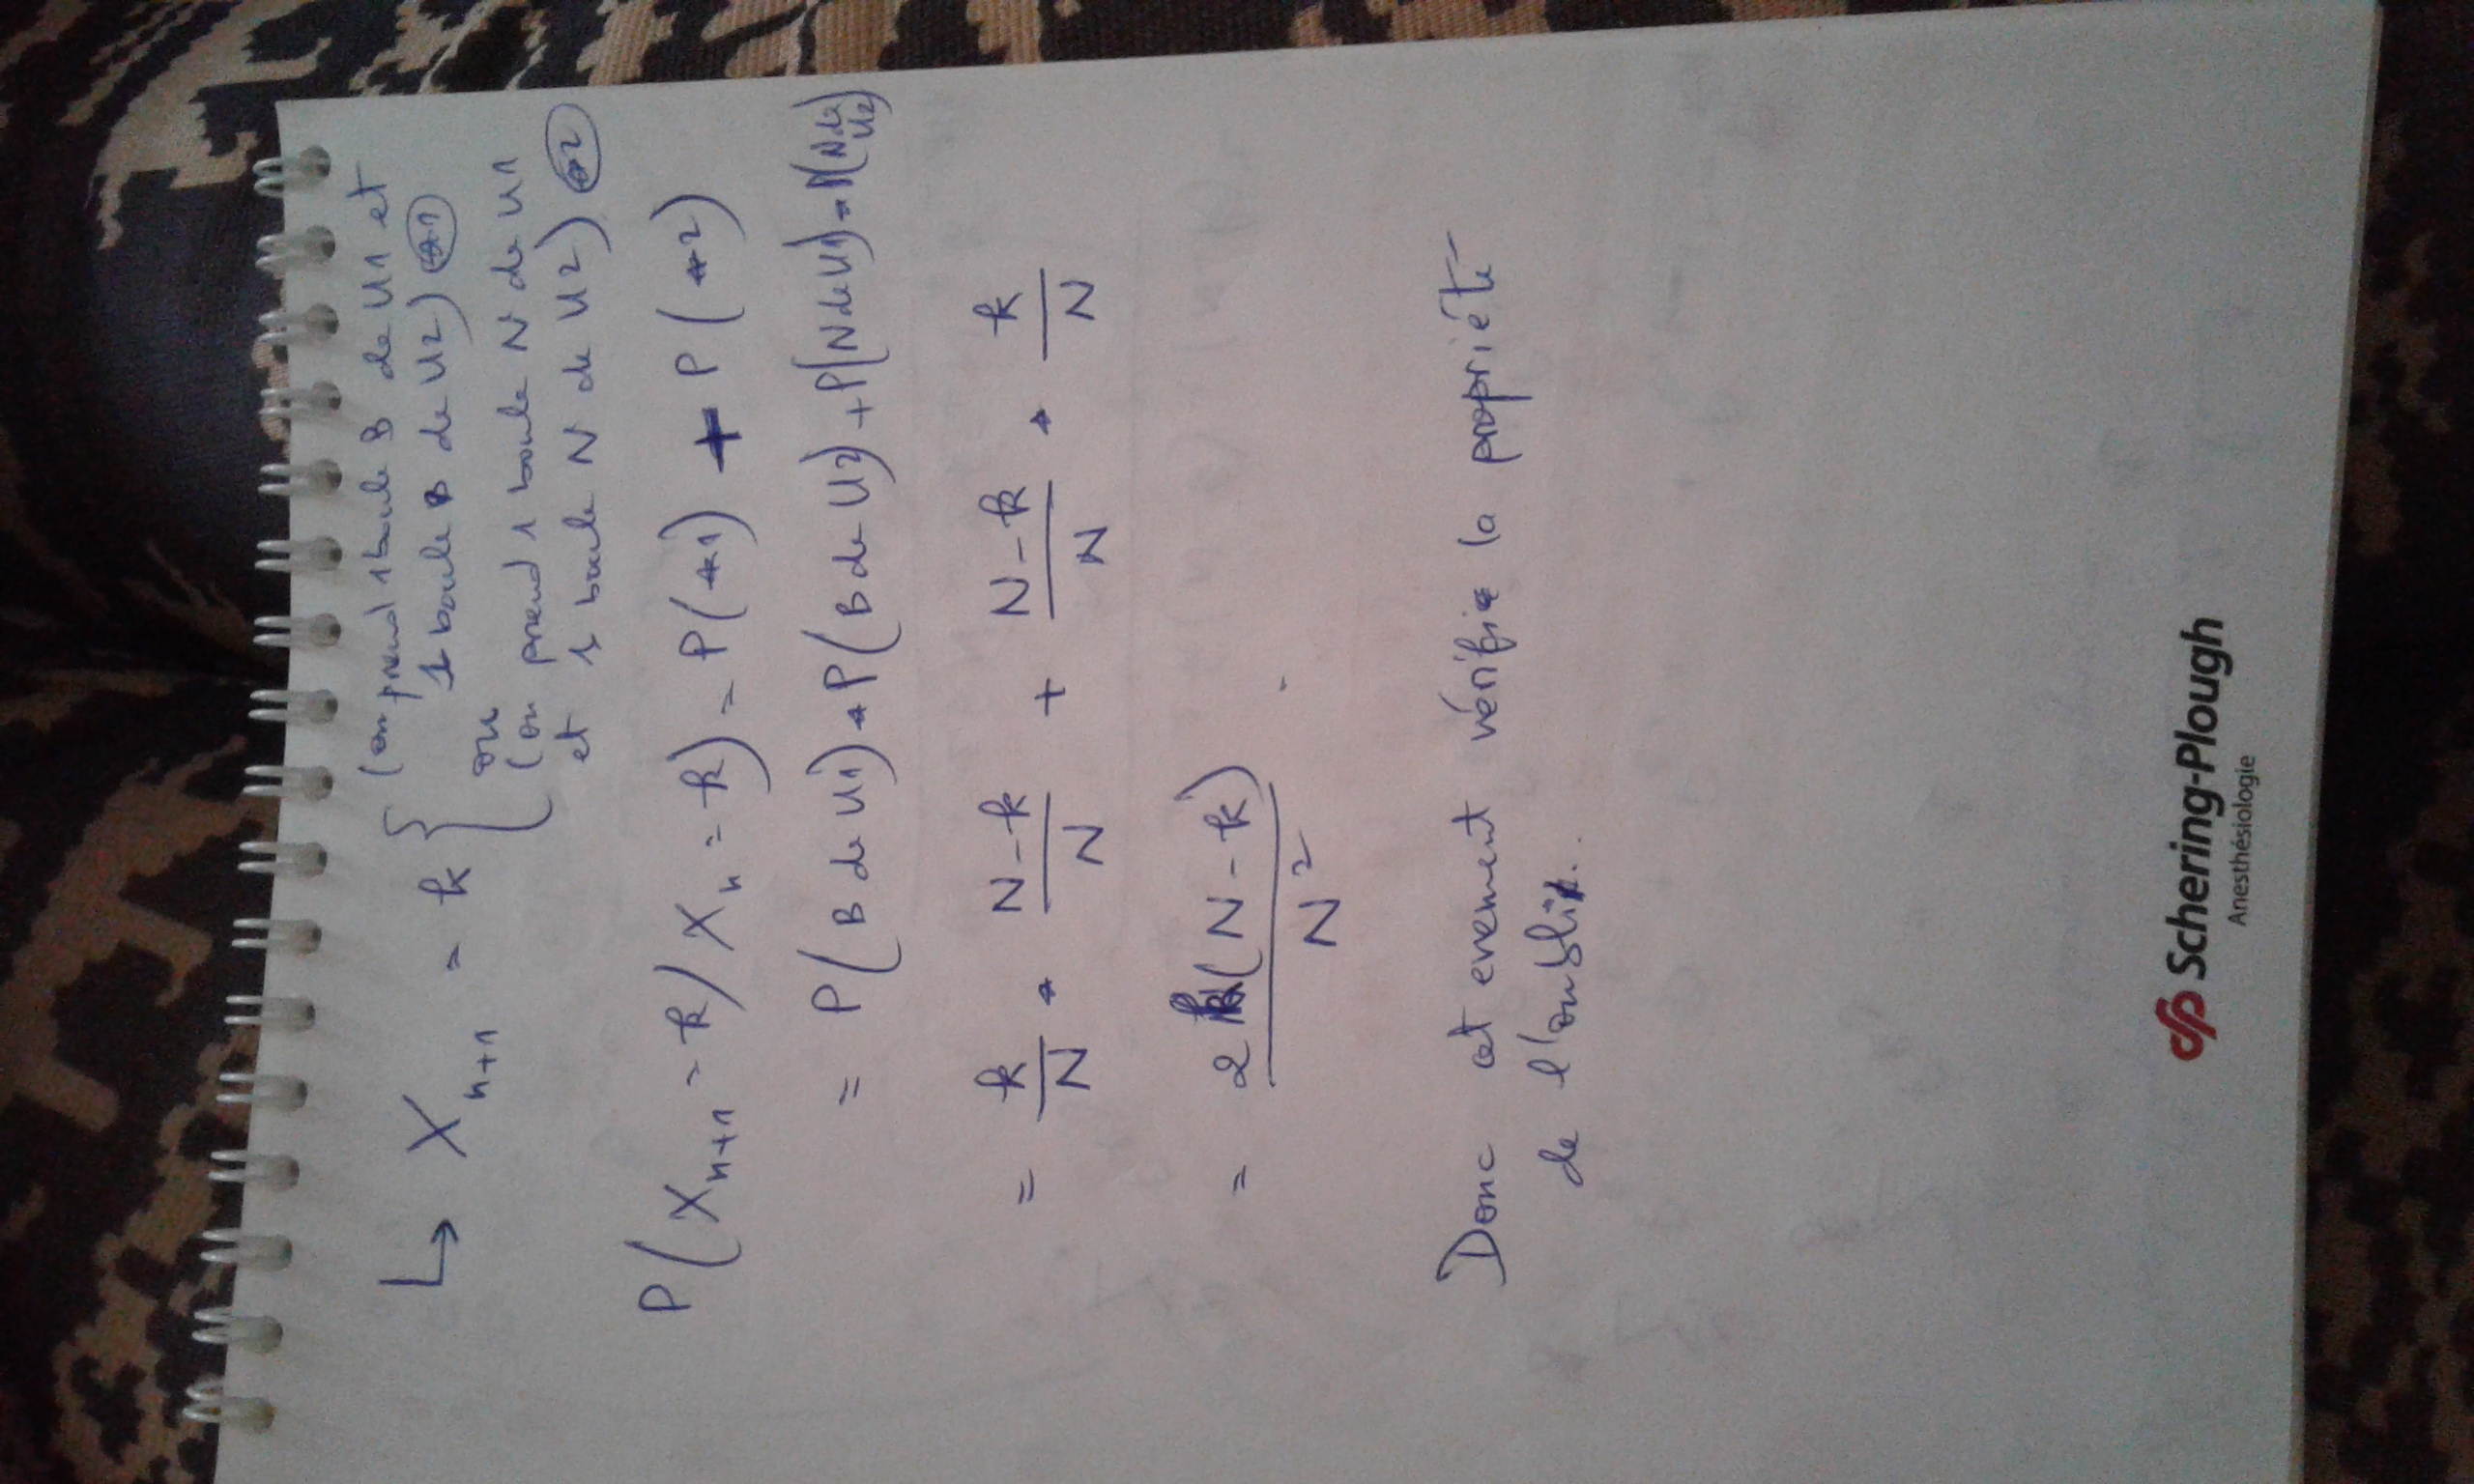 ↳ X_{n+1} = k { (on prend 1 boule B de U1 et
1 boule B de U2) *1
ou
(on prend 1 boule N de U1
et 1 boule N de U2) *2
P(X_{n+1} = k / X_n = k) = P(*1) + P(*2)
= P(B de U1) * P(B de U2) + P(N de U1) * P(N de U2)
= k/N * (N-k)/N + (N-k)/N * k/N
= 2k(N-k)/N²
Donc cet evement vérifie la propriété
de l'oubli.
Schering-Plough
Anesthésiologie